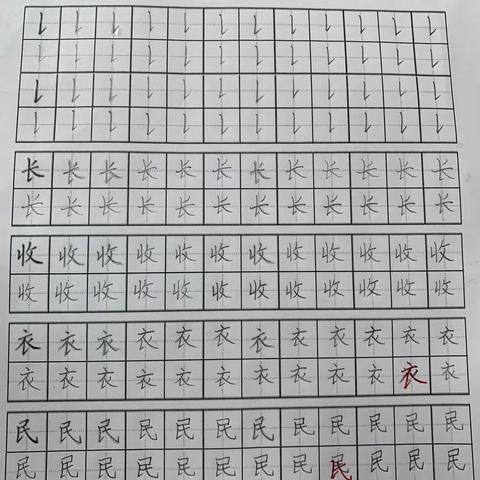 ㇙㇙㇙㇙㇙㇙㇙㇙㇙㇙㇙㇙
㇙㇙㇙㇙㇙㇙㇙㇙㇙㇙㇙㇙
㇙㇙㇙㇙㇙㇙㇙㇙㇙㇙㇙㇙
㇙㇙㇙㇙㇙㇙㇙㇙㇙㇙㇙㇙
长长长长长长长长长长长长
长长长长长长长长长长长长
收收收收收收收收收收收收
收收收收收收收收收收收收
衣衣衣衣衣衣衣衣衣衣衣衣
衣衣衣衣衣衣衣衣衣衣衣衣
民民民民民民民民民民民民
民民民民民民民民民民民民